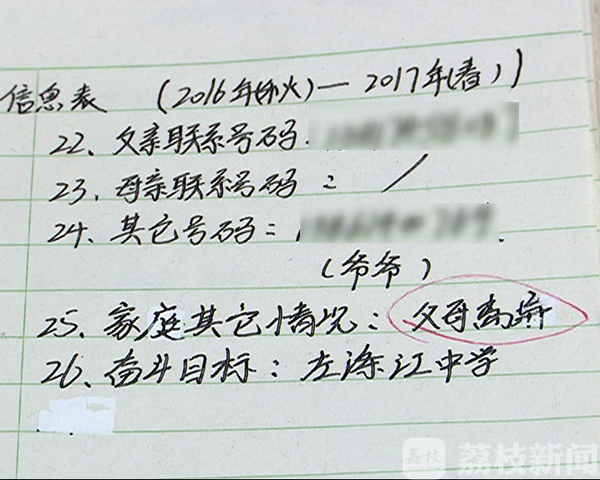 信息表 (2016年(秋)—2017年(春))
22、父亲联系号码:
23、母亲联系号码: /
24、其它号码:
(爷爷)
25、家庭其它情况: 父母离异
26、奋斗目标: 左漆江中学
荔枝 荔枝新闻